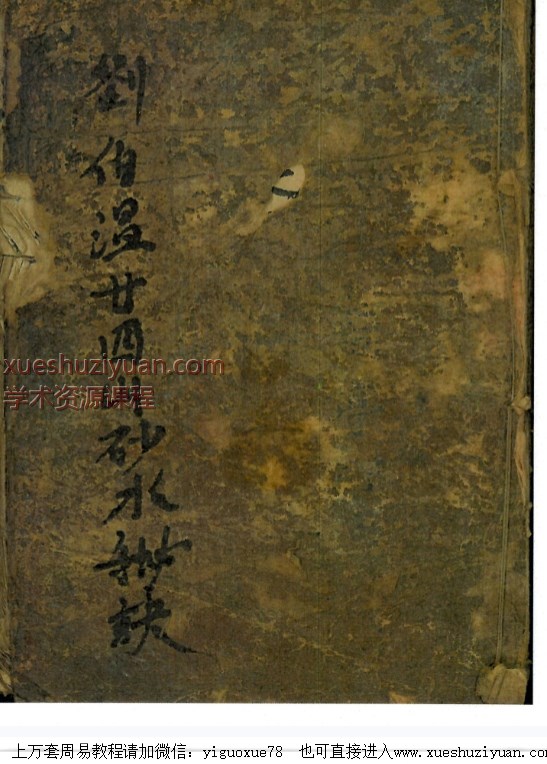 劉伯温廿四山砂水秘訣
xueshuziyuan.com
学术资源课程
上万套周易教程请加微信：yiguoxue78 也可直接进入www.xueshuziyuan.com